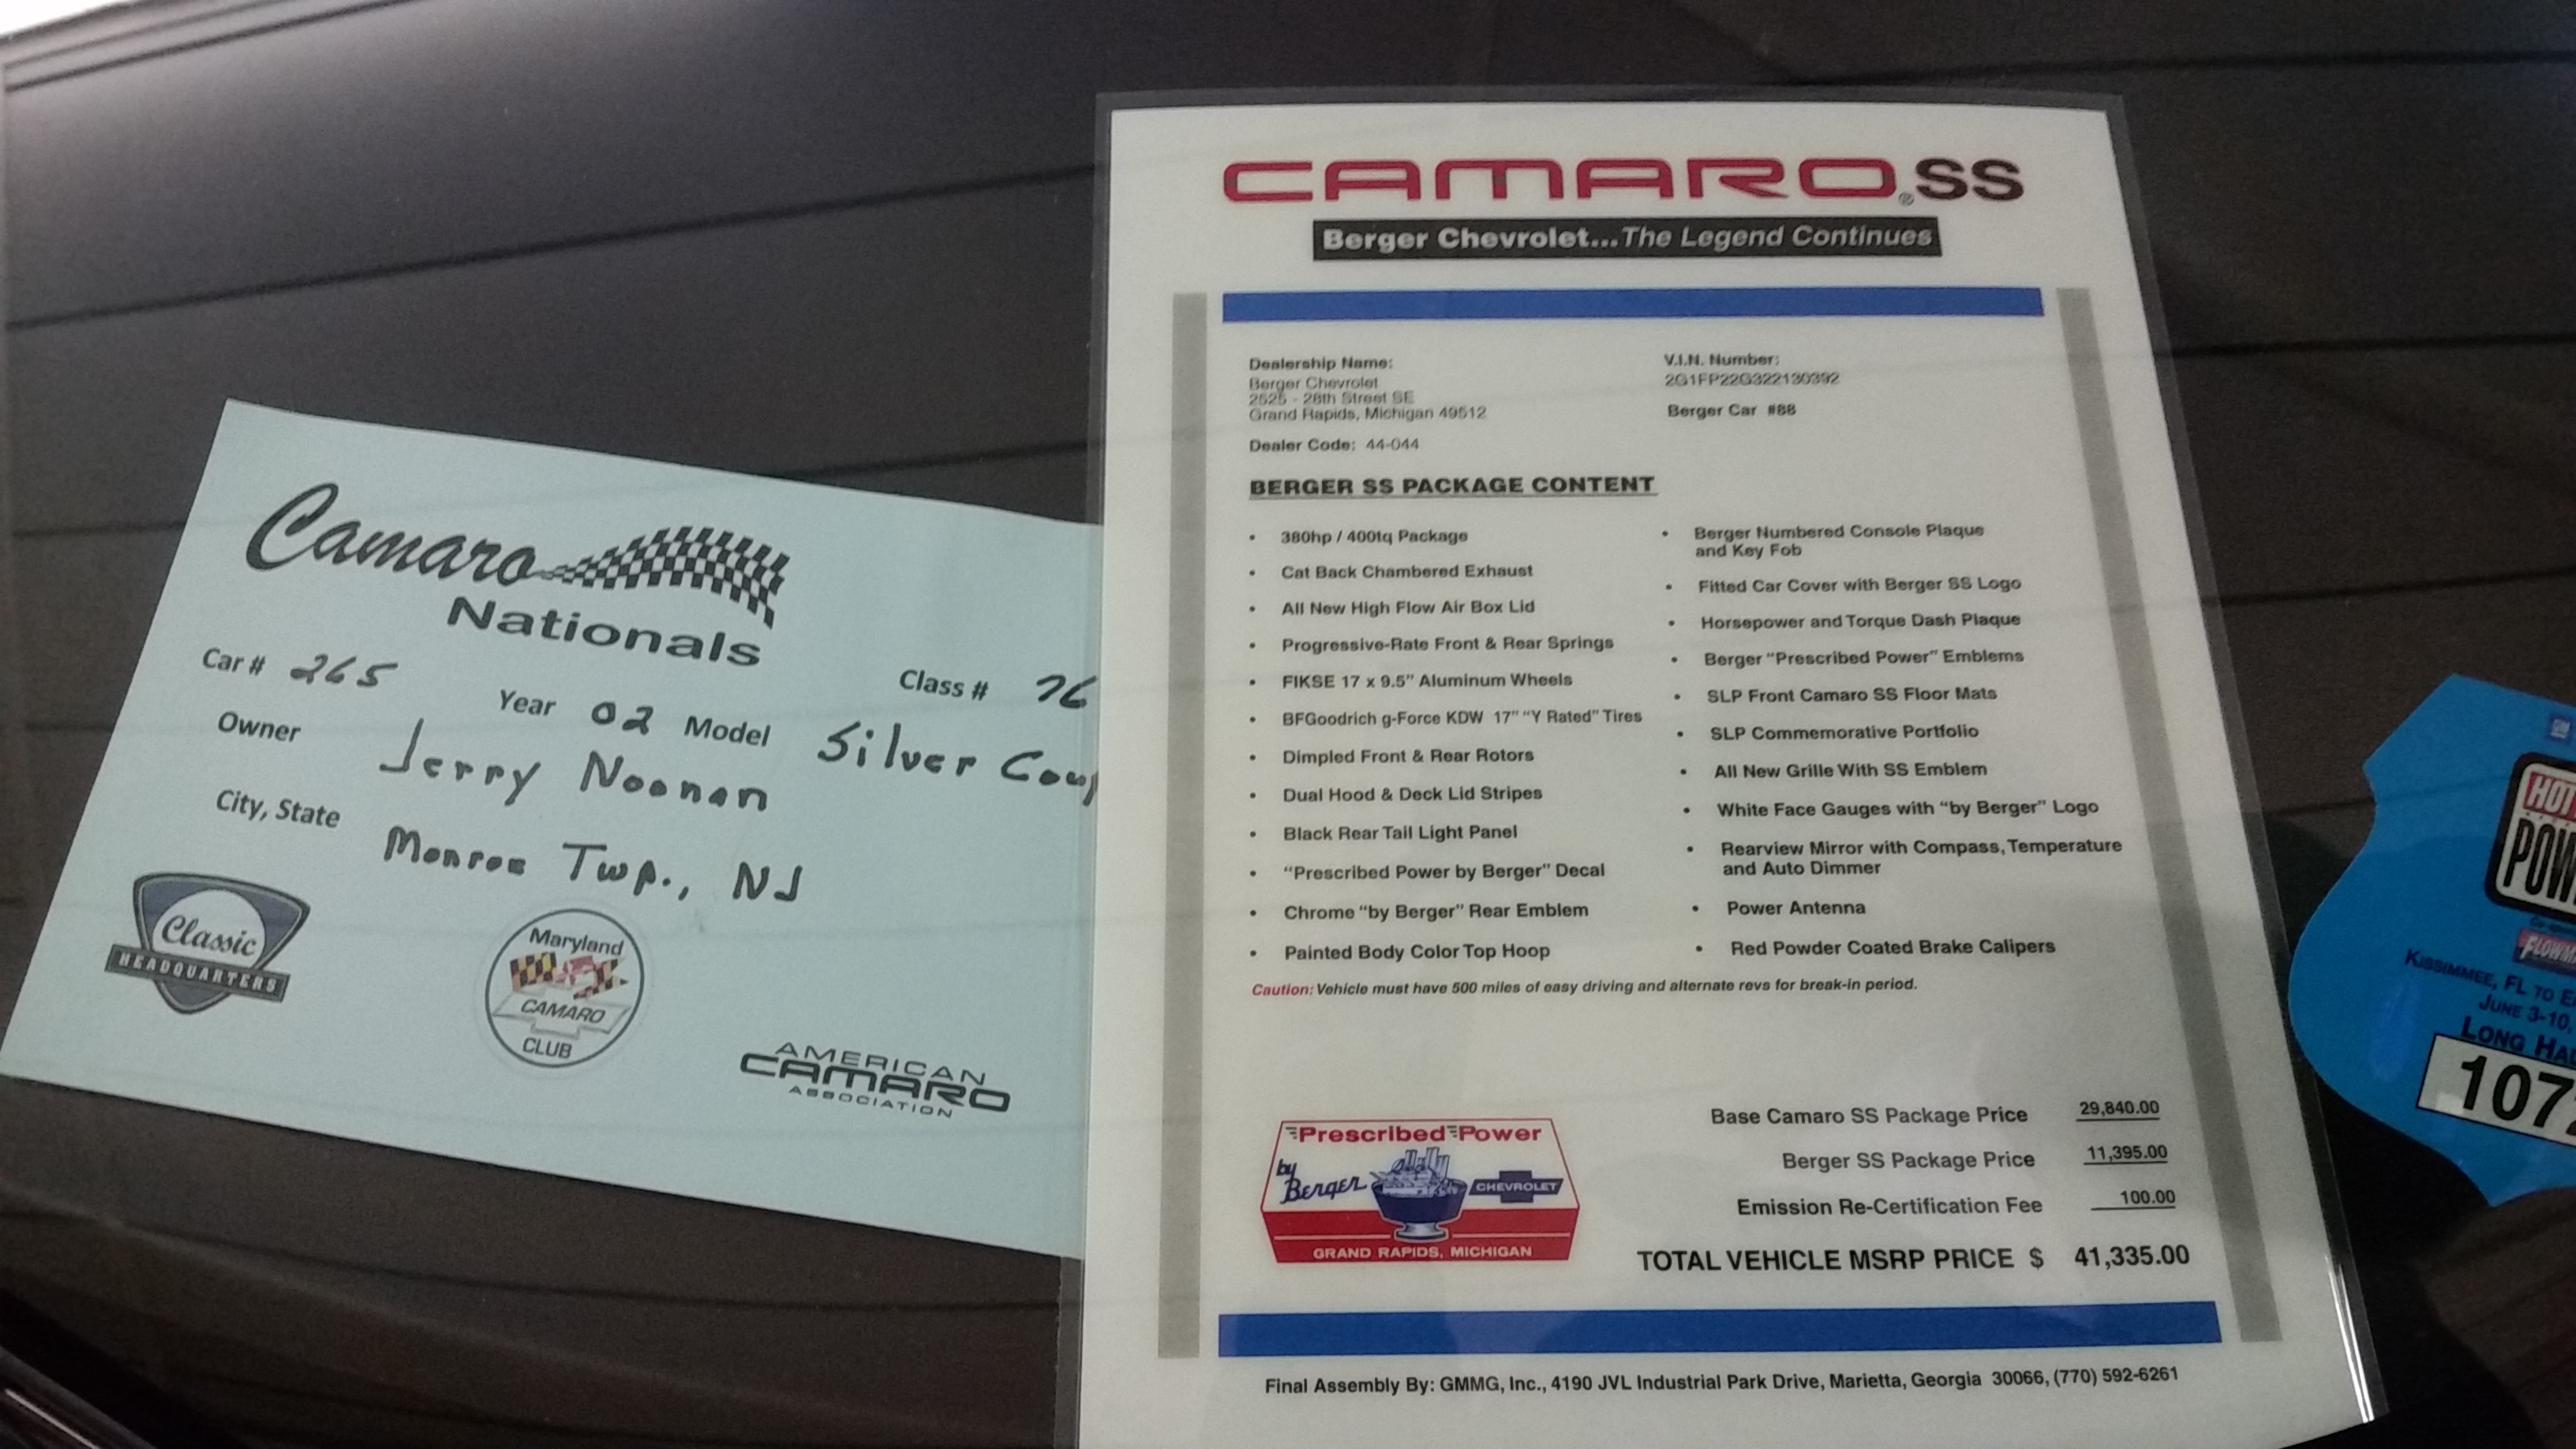 Camaro
Nationals
Car # 265
Class # 76
Year 02 Model Silver
Owner Jerry Noonan
City, State Monroe Twp., NJ
Classic
HEADQUARTERS
Maryland
CAMARO
CLUB
AMERICAN
CAMARO
ASSOCIATION
CAMARO® SS
Berger Chevrolet...The Legend Continues
Dealership Name:
Berger Chevrolet
2525 - 28th Street SE
Grand Rapids, Michigan 49512
Dealer Code: 44-044
V.I.N. Number:
2G1FP22G322130392
Berger Car #88
BERGER SS PACKAGE CONTENT
• 380hp / 400tq Package
• Cat Back Chambered Exhaust
• All New High Flow Air Box Lid
• Progressive-Rate Front & Rear Springs
• FIKSE 17 x 9.5" Aluminum Wheels
• BFGoodrich g-Force KDW 17" "Y Rated" Tires
• Dimpled Front & Rear Rotors
• Dual Hood & Deck Lid Stripes
• Black Rear Tail Light Panel
• "Prescribed Power by Berger" Decal
• Chrome "by Berger" Rear Emblem
• Painted Body Color Top Hoop
• Berger Numbered Console Plaque
and Key Fob
• Fitted Car Cover with Berger SS Logo
• Horsepower and Torque Dash Plaque
• Berger "Prescribed Power" Emblems
• SLP Front Camaro SS Floor Mats
• SLP Commemorative Portfolio
• All New Grille With SS Emblem
• White Face Gauges with "by Berger" Logo
• Rearview Mirror with Compass, Temperature
and Auto Dimmer
• Power Antenna
• Red Powder Coated Brake Calipers
Caution: Vehicle must have 500 miles of easy driving and alternate revs for break-in period.
Prescribed Power
by
Berger
CHEVROLET
GRAND RAPIDS, MICHIGAN
Base Camaro SS Package Price 29,840.00
Berger SS Package Price 11,395.00
Emission Re-Certification Fee 100.00
TOTAL VEHICLE MSRP PRICE $ 41,335.00
Final Assembly By: GMMG, Inc., 4190 JVL Industrial Park Drive, Marietta, Georgia 30066, (770) 592-6261
GM
HOT
KISSIMMEE, FL TO
JUNE 3-10
LONG